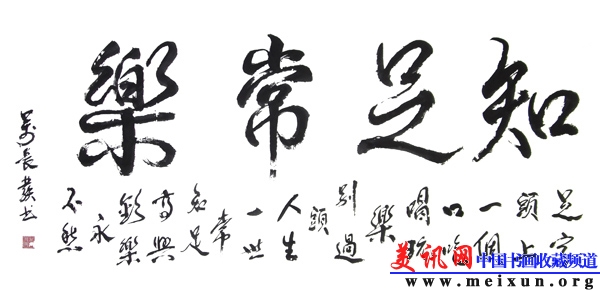 知足常樂
足字
頭上
一個
口吃
喝玩
樂
別過
頭
人生
一世
常
知足
高興
歡樂
永
不愁
長
书
美讯网 中国书画收藏频道
www.meixun.org